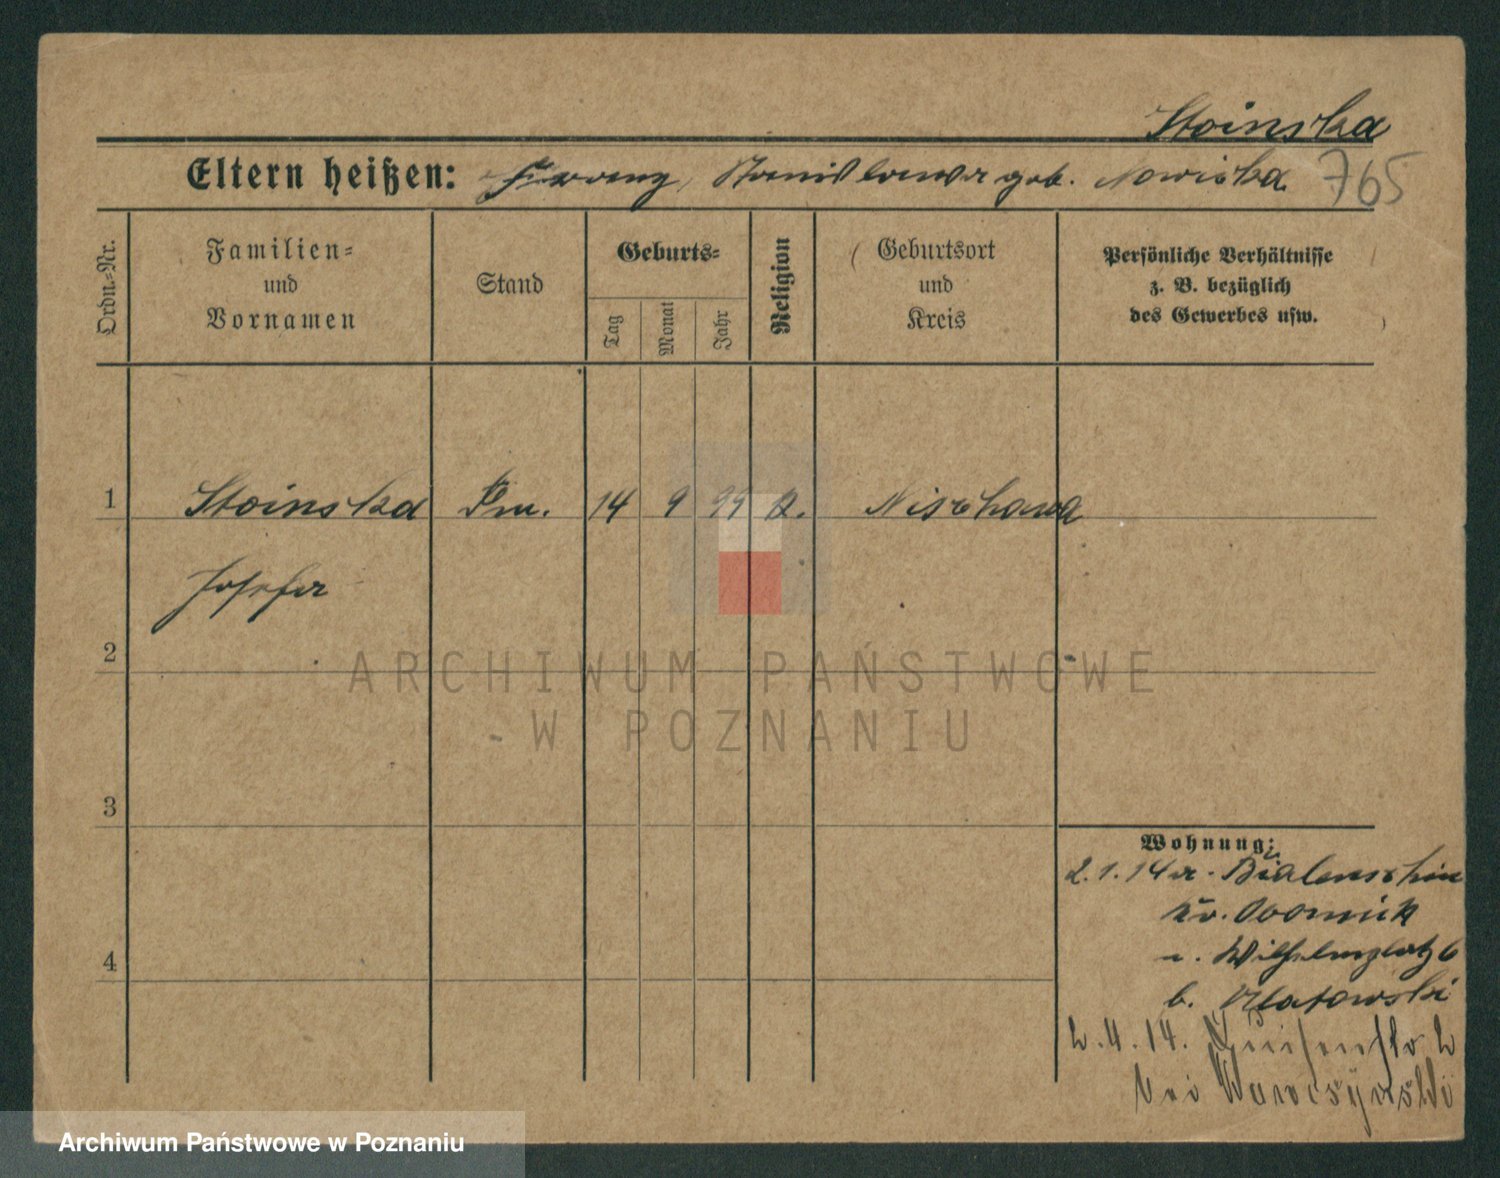 Stoinska
Eltern heißen: Franz, Stanislawa geb. Nowicka 765
Ordn.=Nr.
Familien=
und
Vornamen
Stand
Geburts=
Tag
Monat
Jahr
Religion
Geburtsort
und
Kreis
Persönliche Verhältnisse
z. B. bezüglich
des Gewerbes usw.
1 Stoinska 14 9 95 k.
Josefa
2
3
4
Wohnung:
2.1.14 a.
n. Wilhelmplatz 6
b.
2.4.14. Luisenstr 2
bei
ARCHIWUM PAŃSTWOWE
W POZNANIU
Archiwum Państwowe w Poznaniu